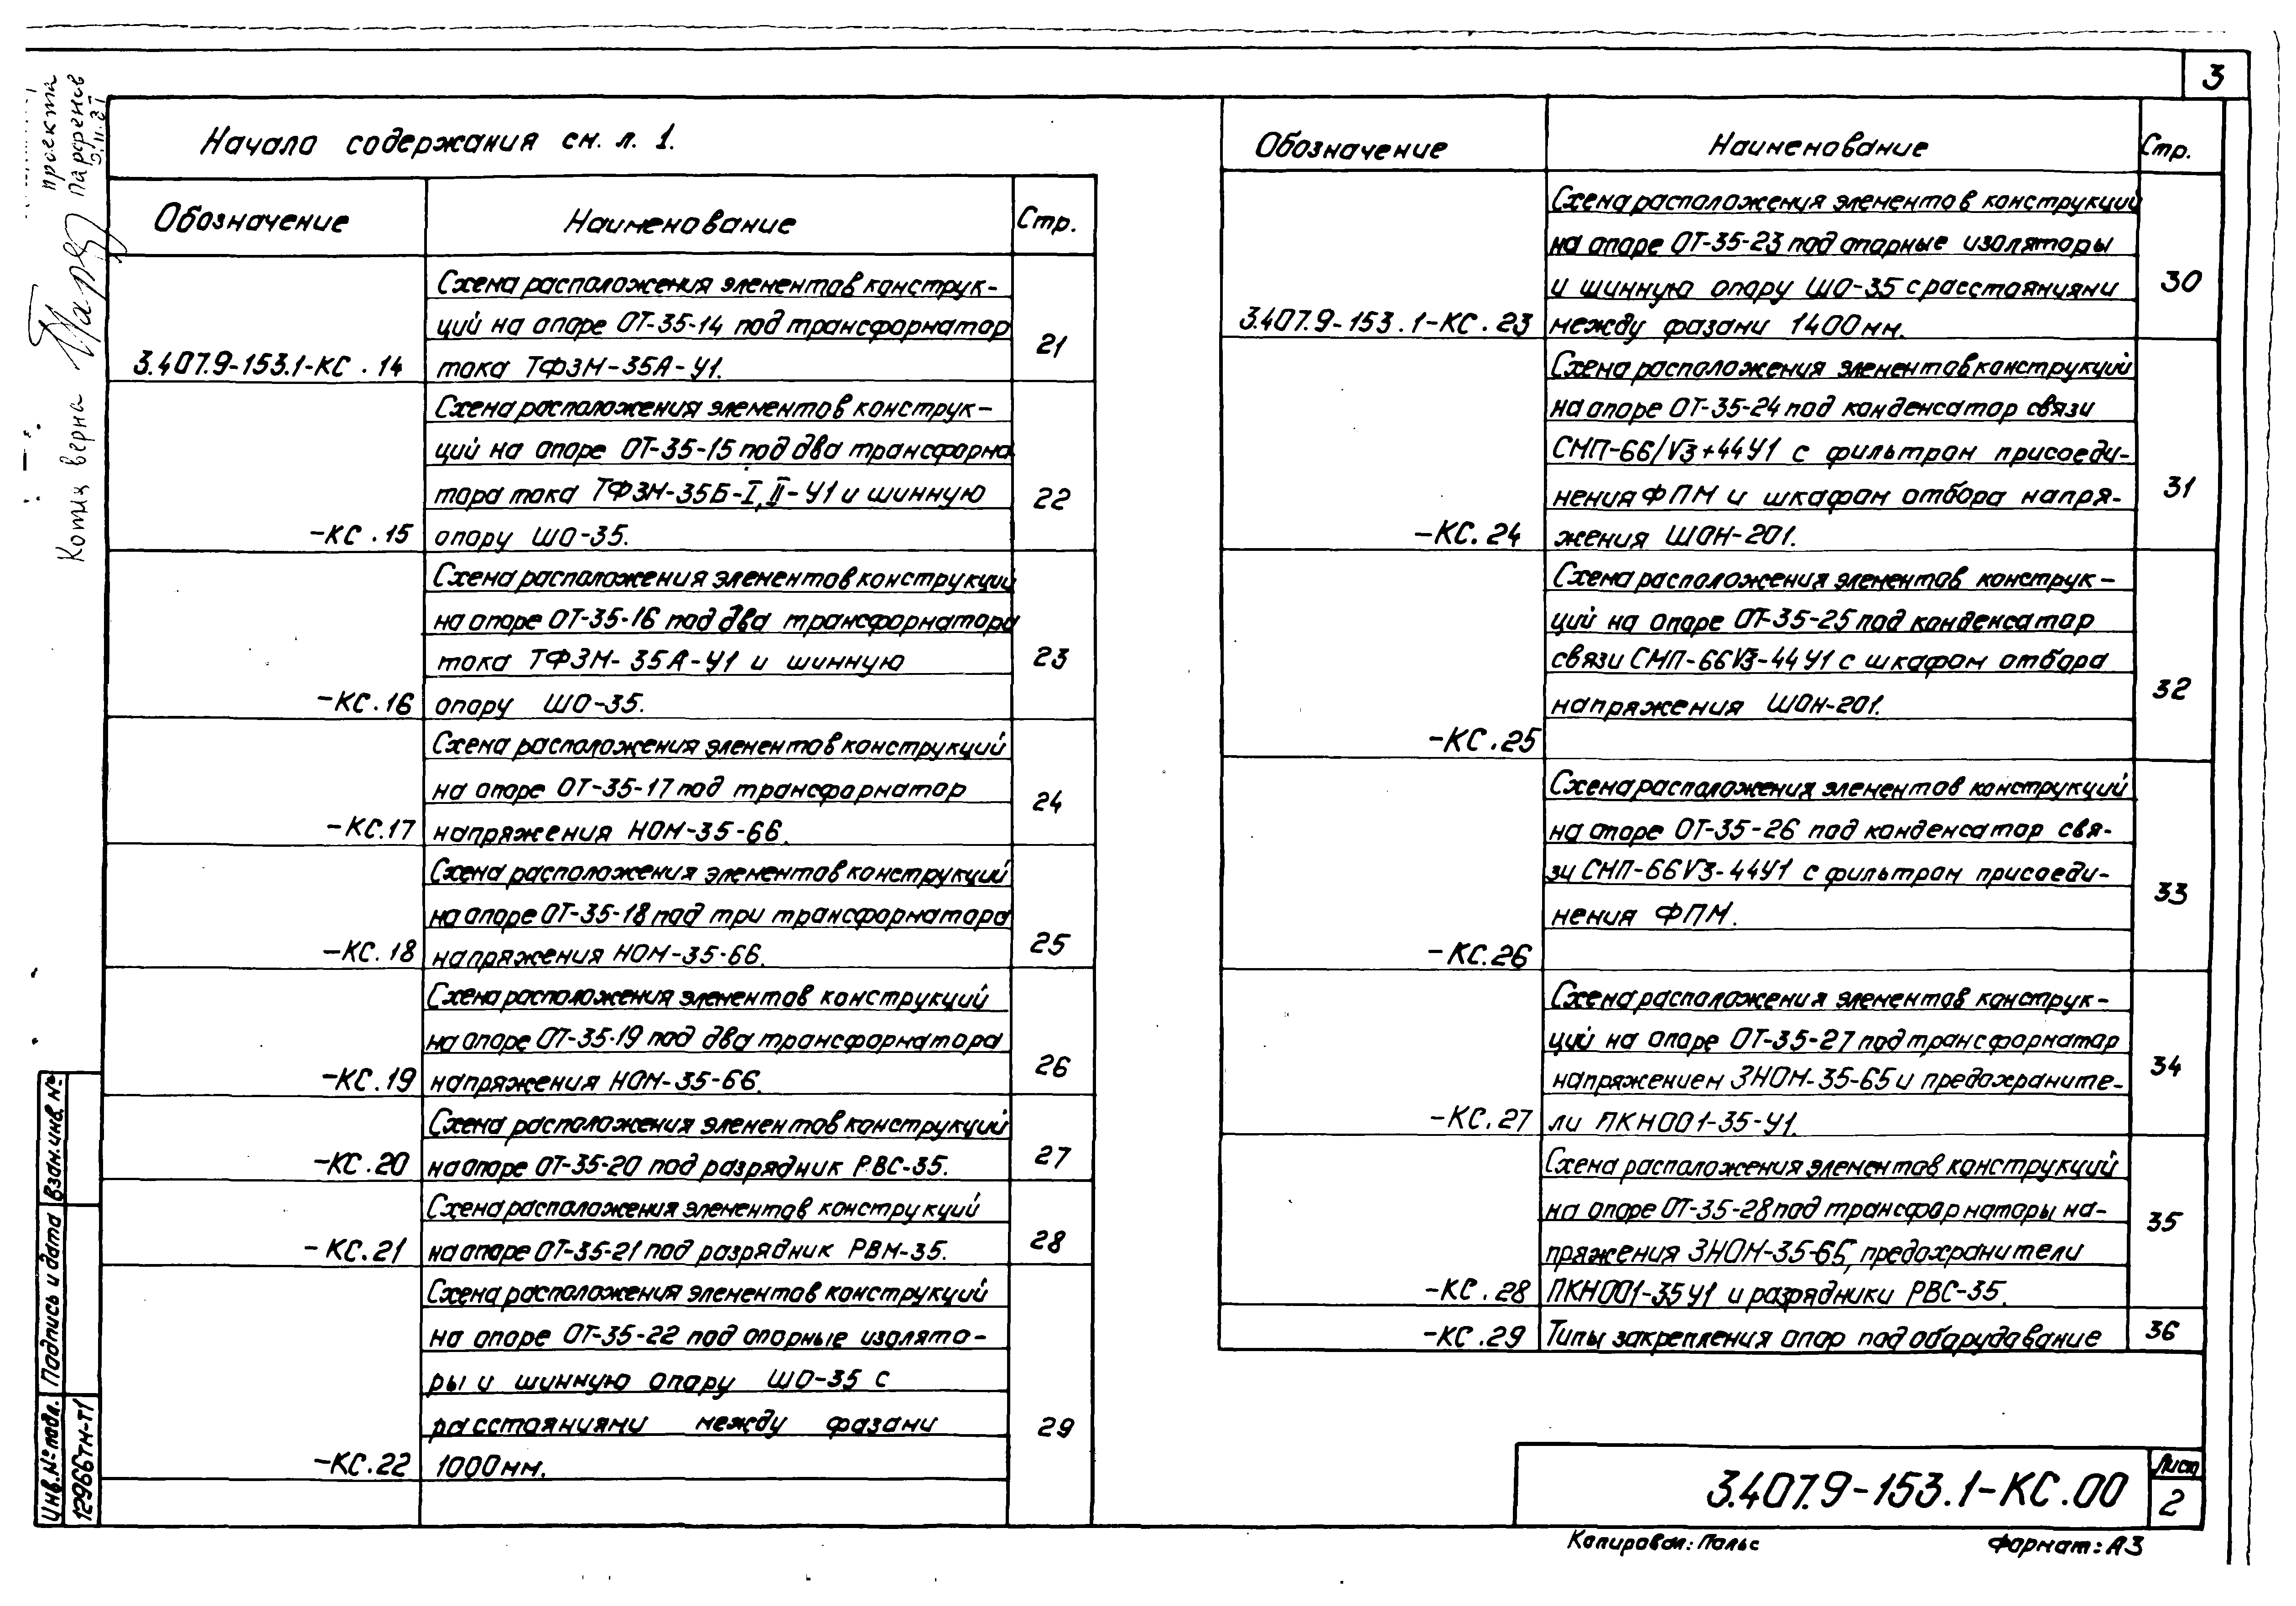 3
Начало содержания см. л. 1.
Обозначение Наименование Стр.
Схема расположения элементов конструк-
ций на опоре ОТ-35-14 под трансформатор
3.407.9-153.1-КС.14 тока ТФЗМ-35А-У1. 21
Схема расположения элементов конструк-
ций на опоре ОТ-35-15 под два трансформа
тора тока ТФЗМ-35Б-I, II-У1 и шинную
-КС.15 опору ШО-35. 22
Схема расположения элементов конструкций
на опоре ОТ-35-16 под два трансформатора
тока ТФЗМ-35А-У1 и шинную
-КС.16 опору ШО-35. 23
Схема расположения элементов конструкций
на опоре ОТ-35-17 под трансформатор
-КС.17 напряжения НОМ-35-66. 24
Схема расположения элементов конструкций
на опоре ОТ-35-18 под три трансформатора
-КС.18 напряжения НОМ-35-66. 25
Схема расположения элементов конструкций
на опоре ОТ-35-19 под два трансформатора
-КС.19 напряжения НОМ-35-66. 26
Схема расположения элементов конструкций
-КС.20 на опоре ОТ-35-20 под разрядник РВС-35. 27
Схема расположения элементов конструкций
-КС.21 на опоре ОТ-35-21 под разрядник РВМ-35. 28
Схема расположения элементов конструкций
на опоре ОТ-35-22 под опорные изолято-
ры и шинную опору ШО-35 с
расстояниями между фазами
-КС.22 1000мм. 29
Обозначение Наименование Стр.
Схема расположения элементов конструкций
на опоре ОТ-35-23 под опорные изоляторы
и шинную опору ШО-35 с расстояниями
3.407.9-153.1-КС.23 между фазами 1400мм. 30
Схема расположения элементов конструкций
на опоре ОТ-35-24 под конденсатор связи
СМП-66/√3+44У1 с фильтром присоеди-
нения ФПМ и шкафом отбора напря-
-КС.24 жения ШОН-201. 31
Схема расположения элементов конструк-
ций на опоре ОТ-35-25 под конденсатор
связи СМП-66√3-44У1 с шкафом отбора
напряжения ШОН-201.
-КС.25 32
Схема расположения элементов конструкций
на опоре ОТ-35-26 под конденсатор свя-
зи СМП-66√3-44У1 с фильтром присоеди-
нения ФПМ.
-КС.26 33
Схема расположения элементов конструк-
ций на опоре ОТ-35-27 под трансформатор
напряжением ЗНОМ-35-65 и предохраните-
-КС.27 ли ПКН001-35-У1. 34
Схема расположения элементов конструкций
на опоре ОТ-35-28 под трансформаторы на-
пряжения ЗНОМ-35-65, предохранители
-КС.28 ПКН001-35У1 и разрядники РВС-35. 35
-КС.29 Типы закрепления опор под оборудование 36
3.407.9-153.1-КС.00
Лист
2
Копировал: Пальс Формат: А3
Инв.№ подл. Подпись и дата Взам.инв.№
12966тм-т1
Копия верна
проекта